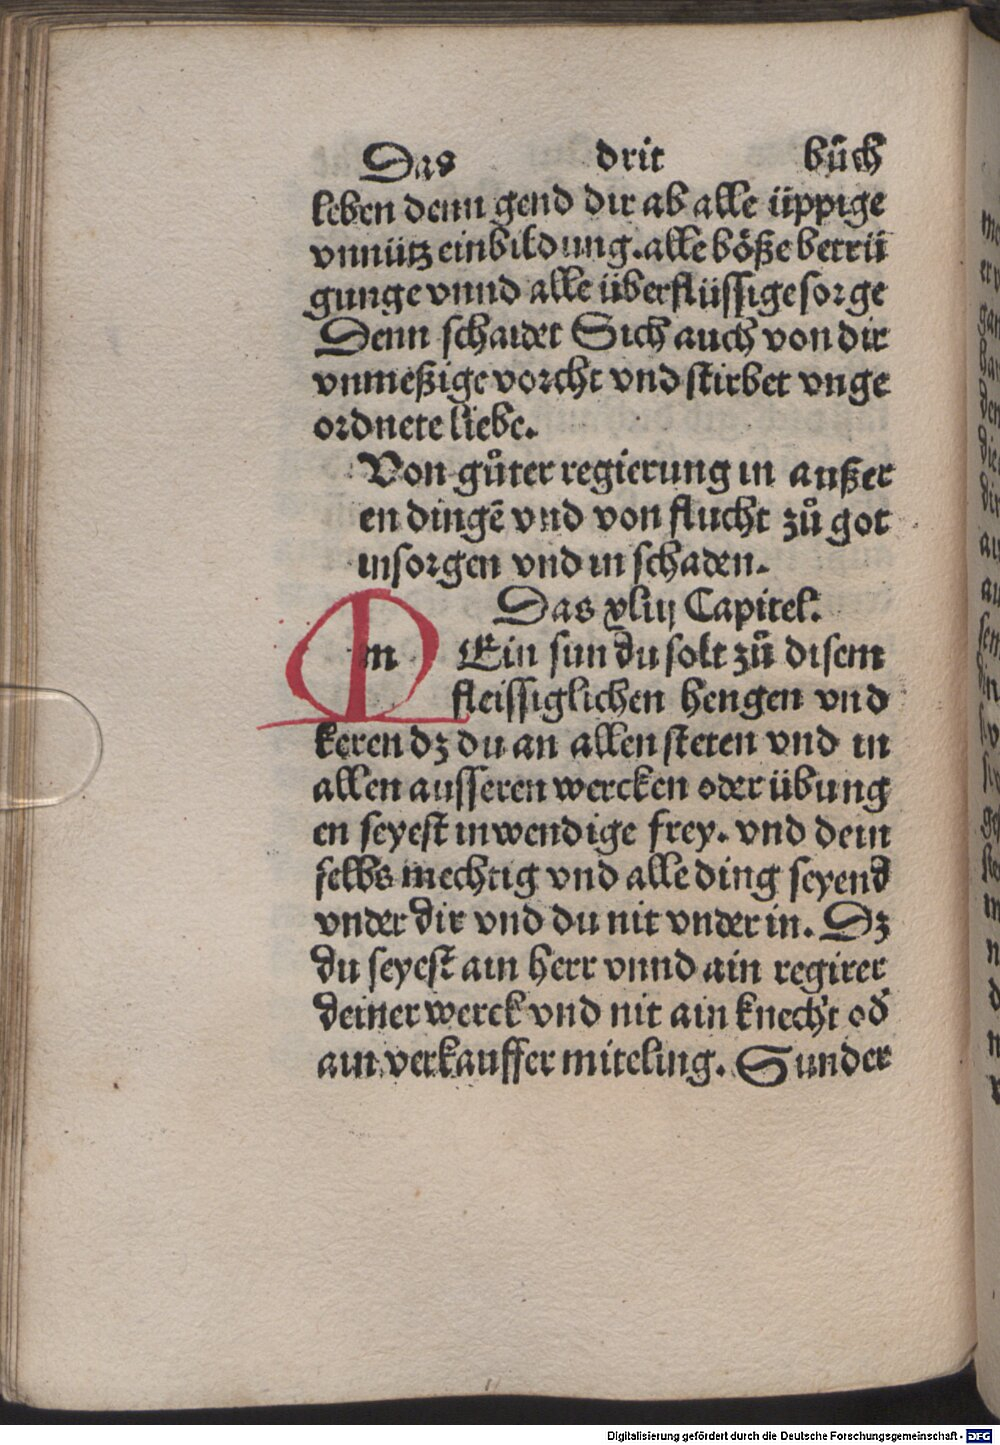 Das drit bůch
leben denn gend dir ab alle üppige
vnnütz einbildung. alle böße betrü
gunge vnnd alle überflüssige sorge
Denn schaidet Sich auch von dir
vnmeßige vorcht vnd stirbet vnge
ordnete liebe.
Von gůter regierung in außer
en dingē vnd von flucht zů got
in sorgen vnd in schaden.
Das xliij Capitel.
m Ein sun du solt zů disem
fleissiglichen hengen vnd
keren dz du an allen steten vnd in
allen ausseren wercken oder übung
en seyest inwendige frey. vnd dein
selbs mechtig vnd alle ding seyend
vnder dir vnd du nit vnder in. Dz
du seyest ain herr vnnd ain regirer
deiner werck vnd nit ain knecht od̕
ain verkauffer miteling. Sunder
Digitalisierung gefördert durch die Deutsche Forschungsgemeinschaft - DFG